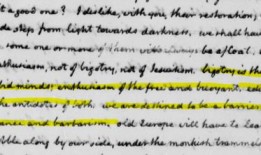 a good one? I dislike, with you, their restoration,
step from light towards darkness. we shall have
some one or more of them will always be afloat.
not of bigotry, not of Jesuitism. bigotry is the
minds; enthusiasm of the free and buoyant. edu
antidotes of both. we are destined to be a barrier
and barbarism. old Europe will have to lean
along by our side, under the monkish trammels